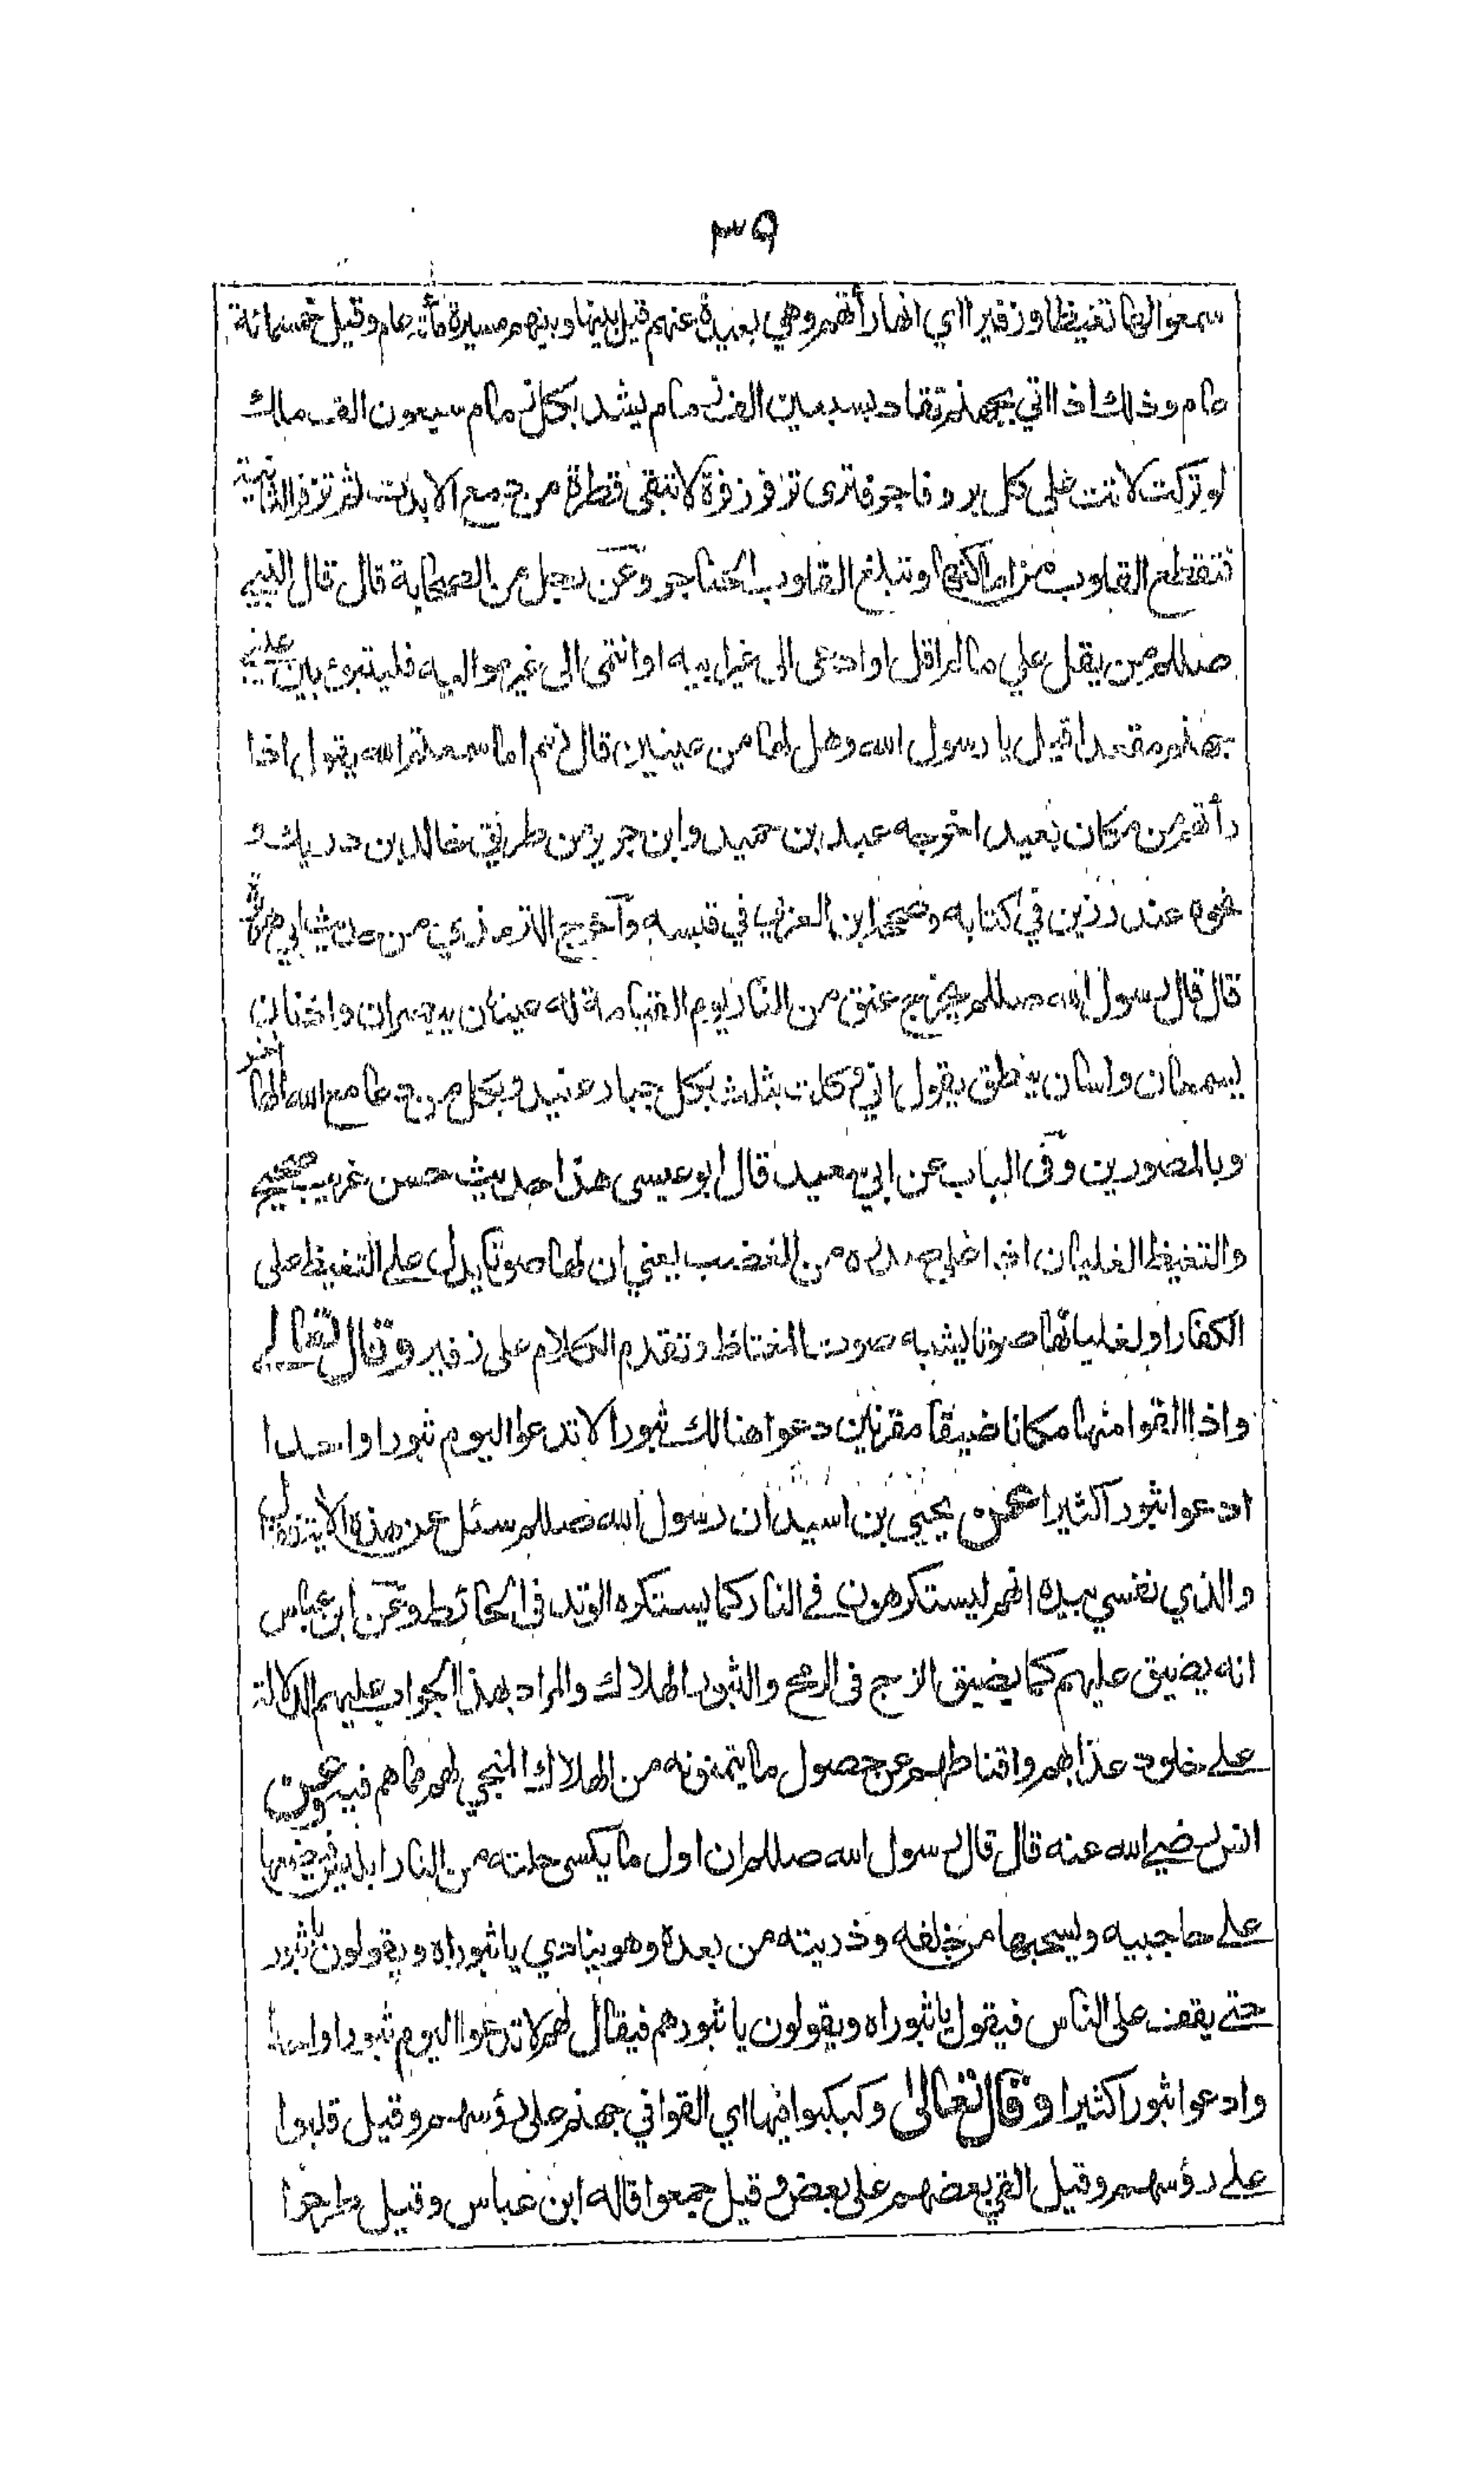 ٣٩
سمعوا لها تغيظا وزفيرا اي انها رأتهم وهي بعيدة عنهم قيل بينها وبينهم مسيرة مأة عام وقيل خمسمائة
عام وذلك اذا اتي بجهنم تقاد بسبعين الف زمام يشد بكل زمام سبعون الف ملك
لو تركت لاتت على كل بر وفاجر فترى تزفر زفرة لا تبقى قطرة من دمع الا بدت ثم تزفر الثانية
فتقطع القلوب من اماكنها وتبلغ القلوب الحناجر وعن رجل من الصحابة قال قال النبي
صللم من يقل علي ما لم اقل او ادعى الى غير ابيه او انتمى الى غير مواليه فليتبوء بين عيني
جهنم مقعدا قيل يا رسول الله وهل لها من عينين قال نعم اما سمعتم الله يقول اذا
رأتهم من مكان بعيد اخرجه عبد بن حميد وابن جرير من طريق خالد بن دريك و
نحوه عند رزين في كتابه وصححه ابن العربي في قبسه وآخرج الترمذي من حديث ابي هريرة
قال قال رسول الله صللم يخرج عنق من النار يوم القيامة له عينان يبصران واذنان
يسمعان ولسان ينطق يقول اني وكلت بثلث بكل جبار عنيد وبكل من دعا مع الله الها آخر
وبالمصورين وفى الباب عن ابي سعيد قال ابو عيسى هذا حديث حسن غريب صحيح
والتغيظ الغليان اذا غلى صدره من الغضب يعني ان لها صوتا يدل على التغيظ على
الكفار او لغليانها صوتا يشبه صوت المغتاظ وتقدم الكلام على زفير وقال تعالى
واذا القوا منها مكانا ضيقا مقرنين دعوا هنالك ثبورا لا تدعوا اليوم ثبورا واحدا
ادعوا ثبورا كثيرا عن يحيى بن اسيد ان رسول الله صللم سئل عن هذه الاية قال
والذي نفسي بيده انهم ليستكرهون في النار كما يستكره الوتد في الحائط وعن ابن عباس
انه يضيق عليهم كما يضيق الزج فى الرمح والثبور الهلاك والمراد بهذا الجواب عليهم الدلالة
على خلود عذابهم واقناطهم عن حصول ما يتمنونه من الهلاك المنجي لهم مما هم فيه وعن
انس رضي الله عنه قال قال رسول الله صللم ان اول ما يكسى حلته من النار ابليس فيضعها
على حاجبيه ويسحبها من خلفه وذريته من بعده وهو ينادي يا ثبوراه ويقولون يا ثبور
حتى يقف على الناس فيقول يا ثبوراه ويقولون يا ثبورهم فيقال لهم لا تدعوا اليوم ثبورا واحدا
وادعوا ثبورا كثيرا وقال تعالى وكبكبوا فيها اي القوا في جهنم على رؤسهم وقيل قلبوا
على رؤسهم وقيل القي بعضهم على بعض وقيل جمعوا قاله ابن عباس وقيل طرحوا